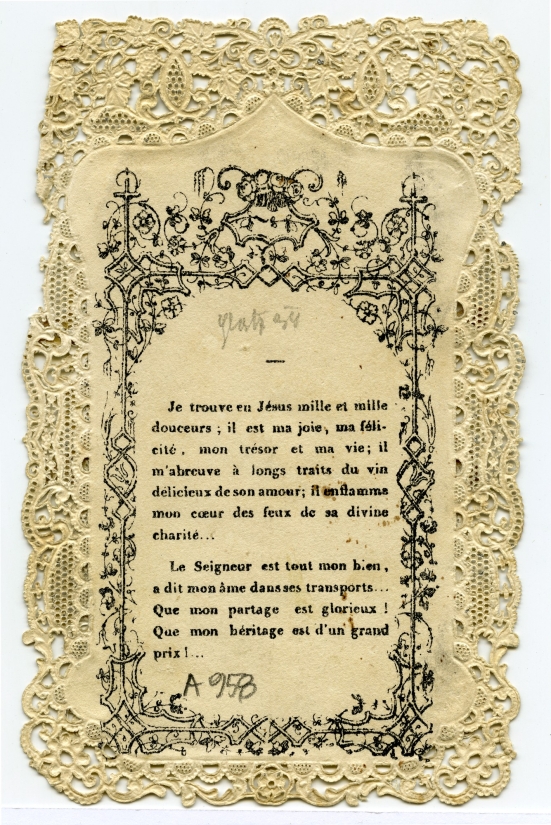 Je trouve en Jésus mille et mille
douceurs ; il est ma joie, ma féli-
cité, mon trésor et ma vie ; il
m'abreuve à longs traits du vin
délicieux de son amour; il enflamme
mon cœur des feux de sa divine
charité...
Le Seigneur est tout mon bien,
a dit mon âme dans ses transports...
Que mon partage est glorieux !
Que mon héritage est d'un grand
prix !...
A 958